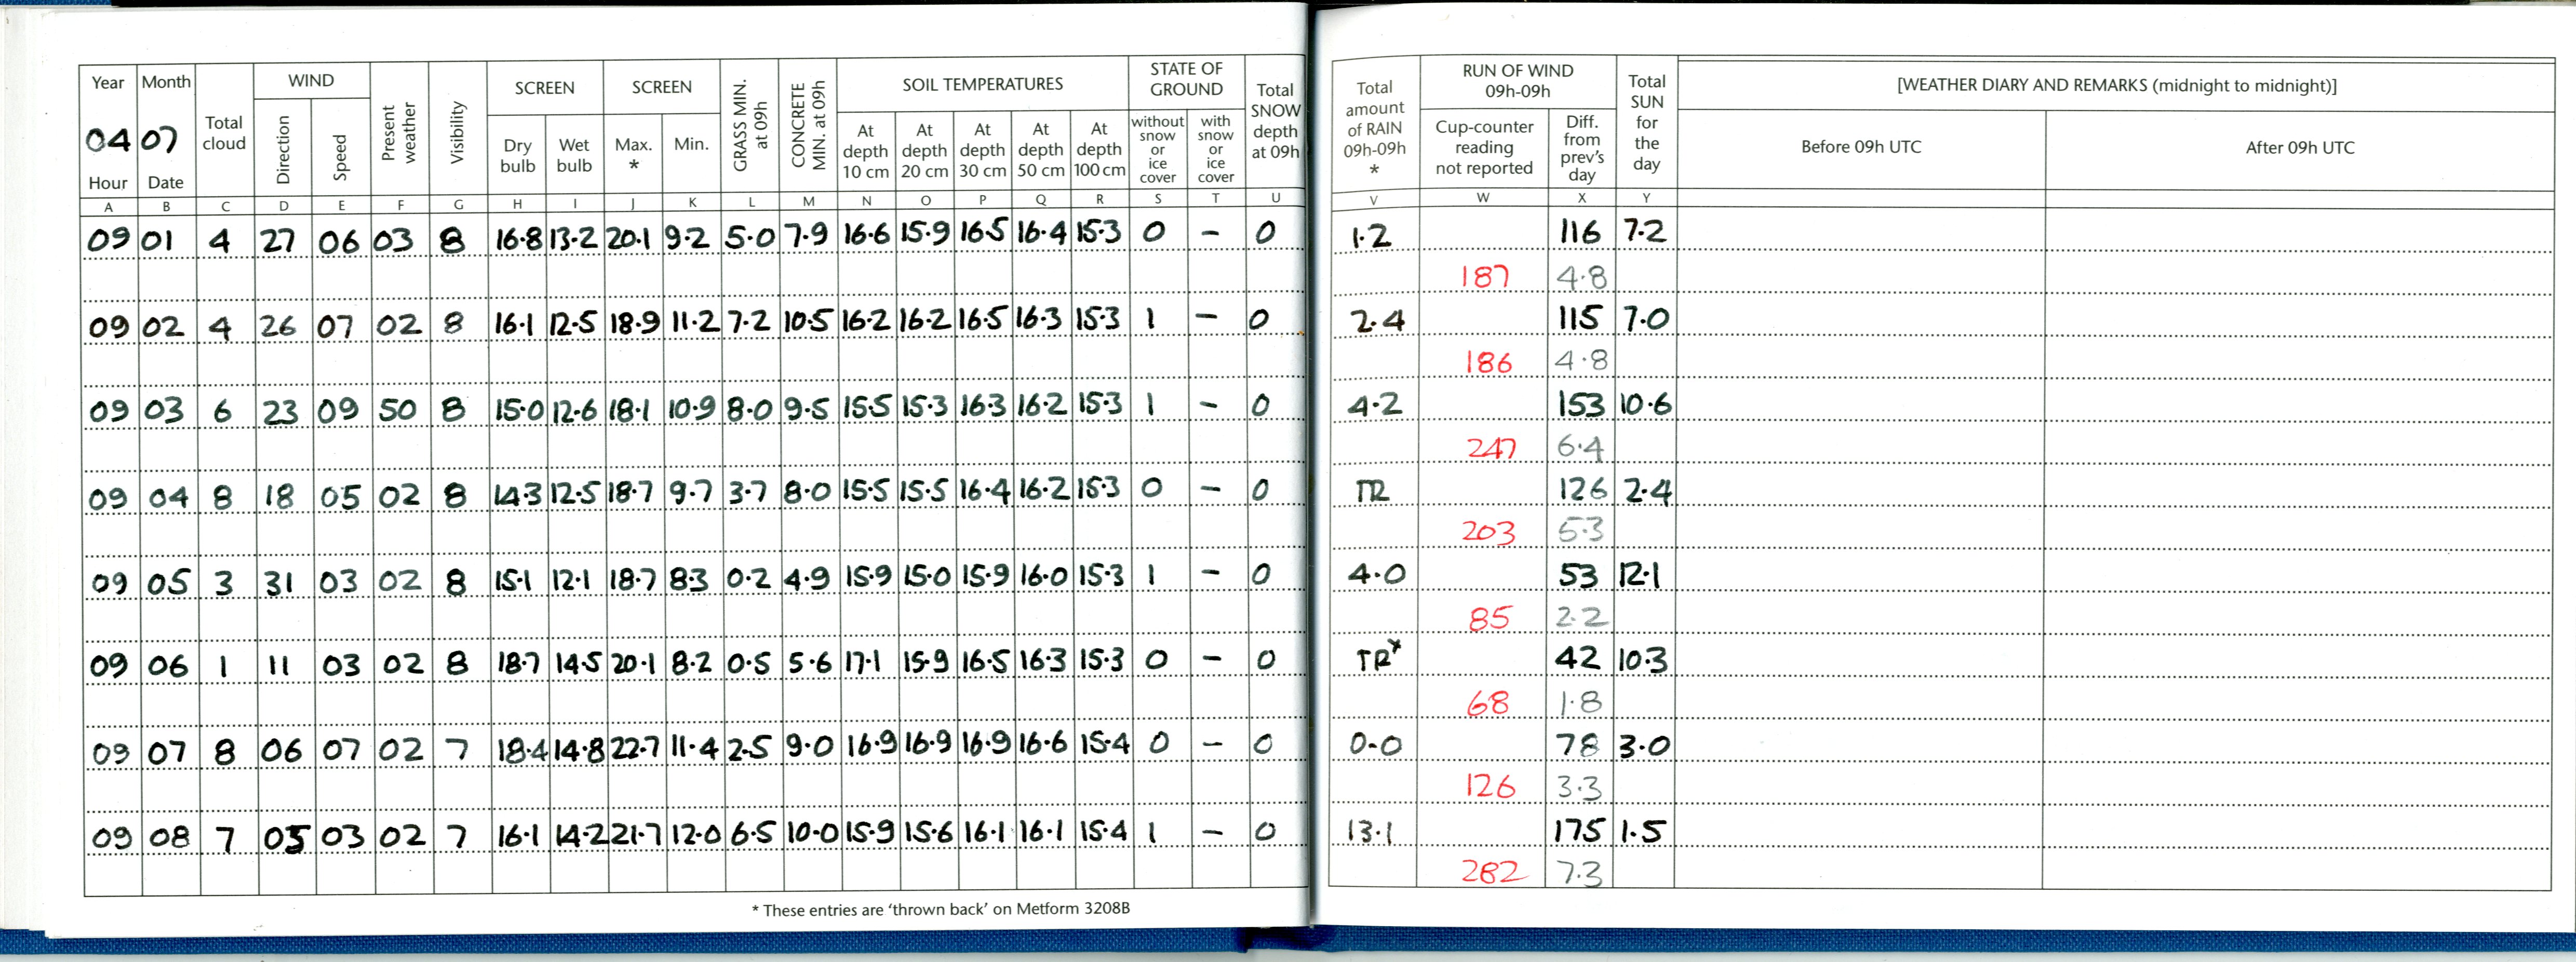 Year Month Total cloud WIND Present weather Visibility SCREEN SCREEN GRASS MIN. at 09h CONCRETE MIN. at 09h SOIL TEMPERATURES STATE OF GROUND Total SNOW depth at 09h Total amount of RAIN 09h-09h * RUN OF WIND 09h-09h Total SUN for the day [WEATHER DIARY AND REMARKS (midnight to midnight)]
04 07 Direction Speed Dry bulb Wet bulb Max. * Min. At depth 10 cm At depth 20 cm At depth 30 cm At depth 50 cm At depth 100 cm without snow or ice cover with snow or ice cover Cup-counter reading not reported Diff. from prev's day Before 09h UTC After 09h UTC
Hour Date
A B C D E F G H I J K L M N O P Q R S T U V W X Y
09 01 4 27 06 03 8 16.8 13.2 20.1 9.2 5.0 7.9 16.6 15.9 16.5 16.4 15.3 0 - 0 1.2 116 7.2
187 4.8
09 02 4 26 07 02 8 16.1 12.5 18.9 11.2 7.2 10.5 16.2 16.2 16.5 16.3 15.3 1 - 0 2.4 115 7.0
186 4.8
09 03 6 23 09 50 8 15.0 12.6 18.1 10.9 8.0 9.5 15.5 15.3 16.3 16.2 15.3 1 - 0 4.2 153 10.6
247 6.4
09 04 8 18 05 02 8 14.3 12.5 18.7 9.7 3.7 8.0 15.5 15.5 16.4 16.2 15.3 0 - 0 TR 126 2.4
203 5.3
09 05 3 31 03 02 8 15.1 12.1 18.7 8.3 0.2 4.9 15.9 15.0 15.9 16.0 15.3 1 - 0 4.0 53 12.1
85 2.2
09 06 1 11 03 02 8 18.7 14.5 20.1 8.2 0.5 5.6 17.1 15.9 16.5 16.3 15.3 0 - 0 TR* 42 10.3
68 1.8
09 07 8 06 07 02 7 18.4 14.8 22.7 11.4 2.5 9.0 16.9 16.9 16.9 16.6 15.4 0 - 0 0.0 78 3.0
126 3.3
09 08 7 05 03 02 7 16.1 14.2 21.7 12.0 6.5 10.0 15.9 15.6 16.1 16.1 15.4 1 - 0 13.1 175 1.5
282 7.3
* These entries are 'thrown back' on Metform 3208B